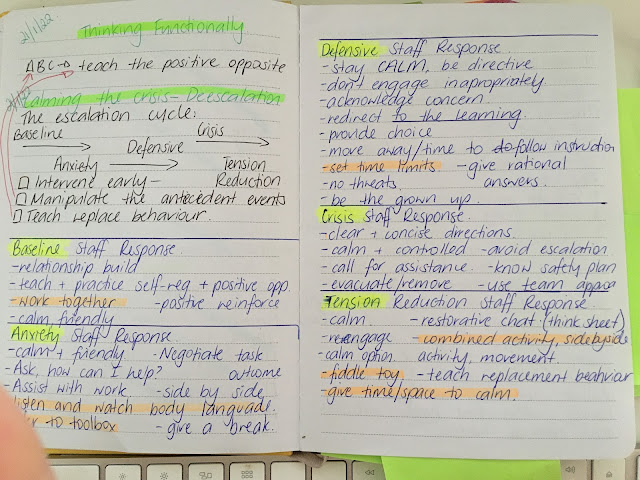 21/1/22
Thinking Functionally
ABC → teach the positive opposite
Calming the crisis - Deescalation
The escalation cycle:
Baseline Crisis
Defensive
Anxiety Tension
□ Intervene early - Reduction
□ Manipulate the antecedent events
□ Teach replace behaviour.
Baseline Staff Response
- relationship build
- teach + practice self-reg + positive opp
- work together - positive reinforce
- calm, friendly
Anxiety Staff Response
- calm + friendly - Negotiate task
- Ask, how can I help? outcome
- Assist with work - side by side
listen and watch body language.
to toolbox - give a break.
Defensive Staff Response
- stay CALM, be directive
- don't engage inapropriately
- acknowledge concern.
- redirect to the learning.
- provide choice
- move away/time to do follow instruction
- set time limits - give rational
- no threats. answers.
- be the grown up.
Crisis Staff Response
- clear + concise directions.
- calm + controlled - avoid escalation
- call for assistance - know safety plan
- evacuate/remove - use team approa
Tension Reduction Staff Response
- calm. - restorative chat (think sheet)
- reengage - combined activity, side by side
- calm option. activity, movement.
- fiddle toy - teach replacement beahviour
- give time/space to calm.